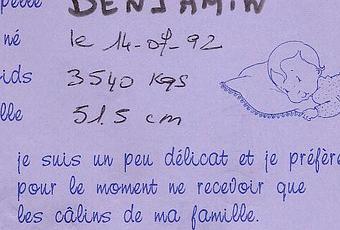 pelle BENJAMIN
né le 14-07-92
ids 3540 Kgs
lle 51.5 cm
je suis un peu délicat et je préfère
pour le moment ne recevoir que
les câlins de ma famille.